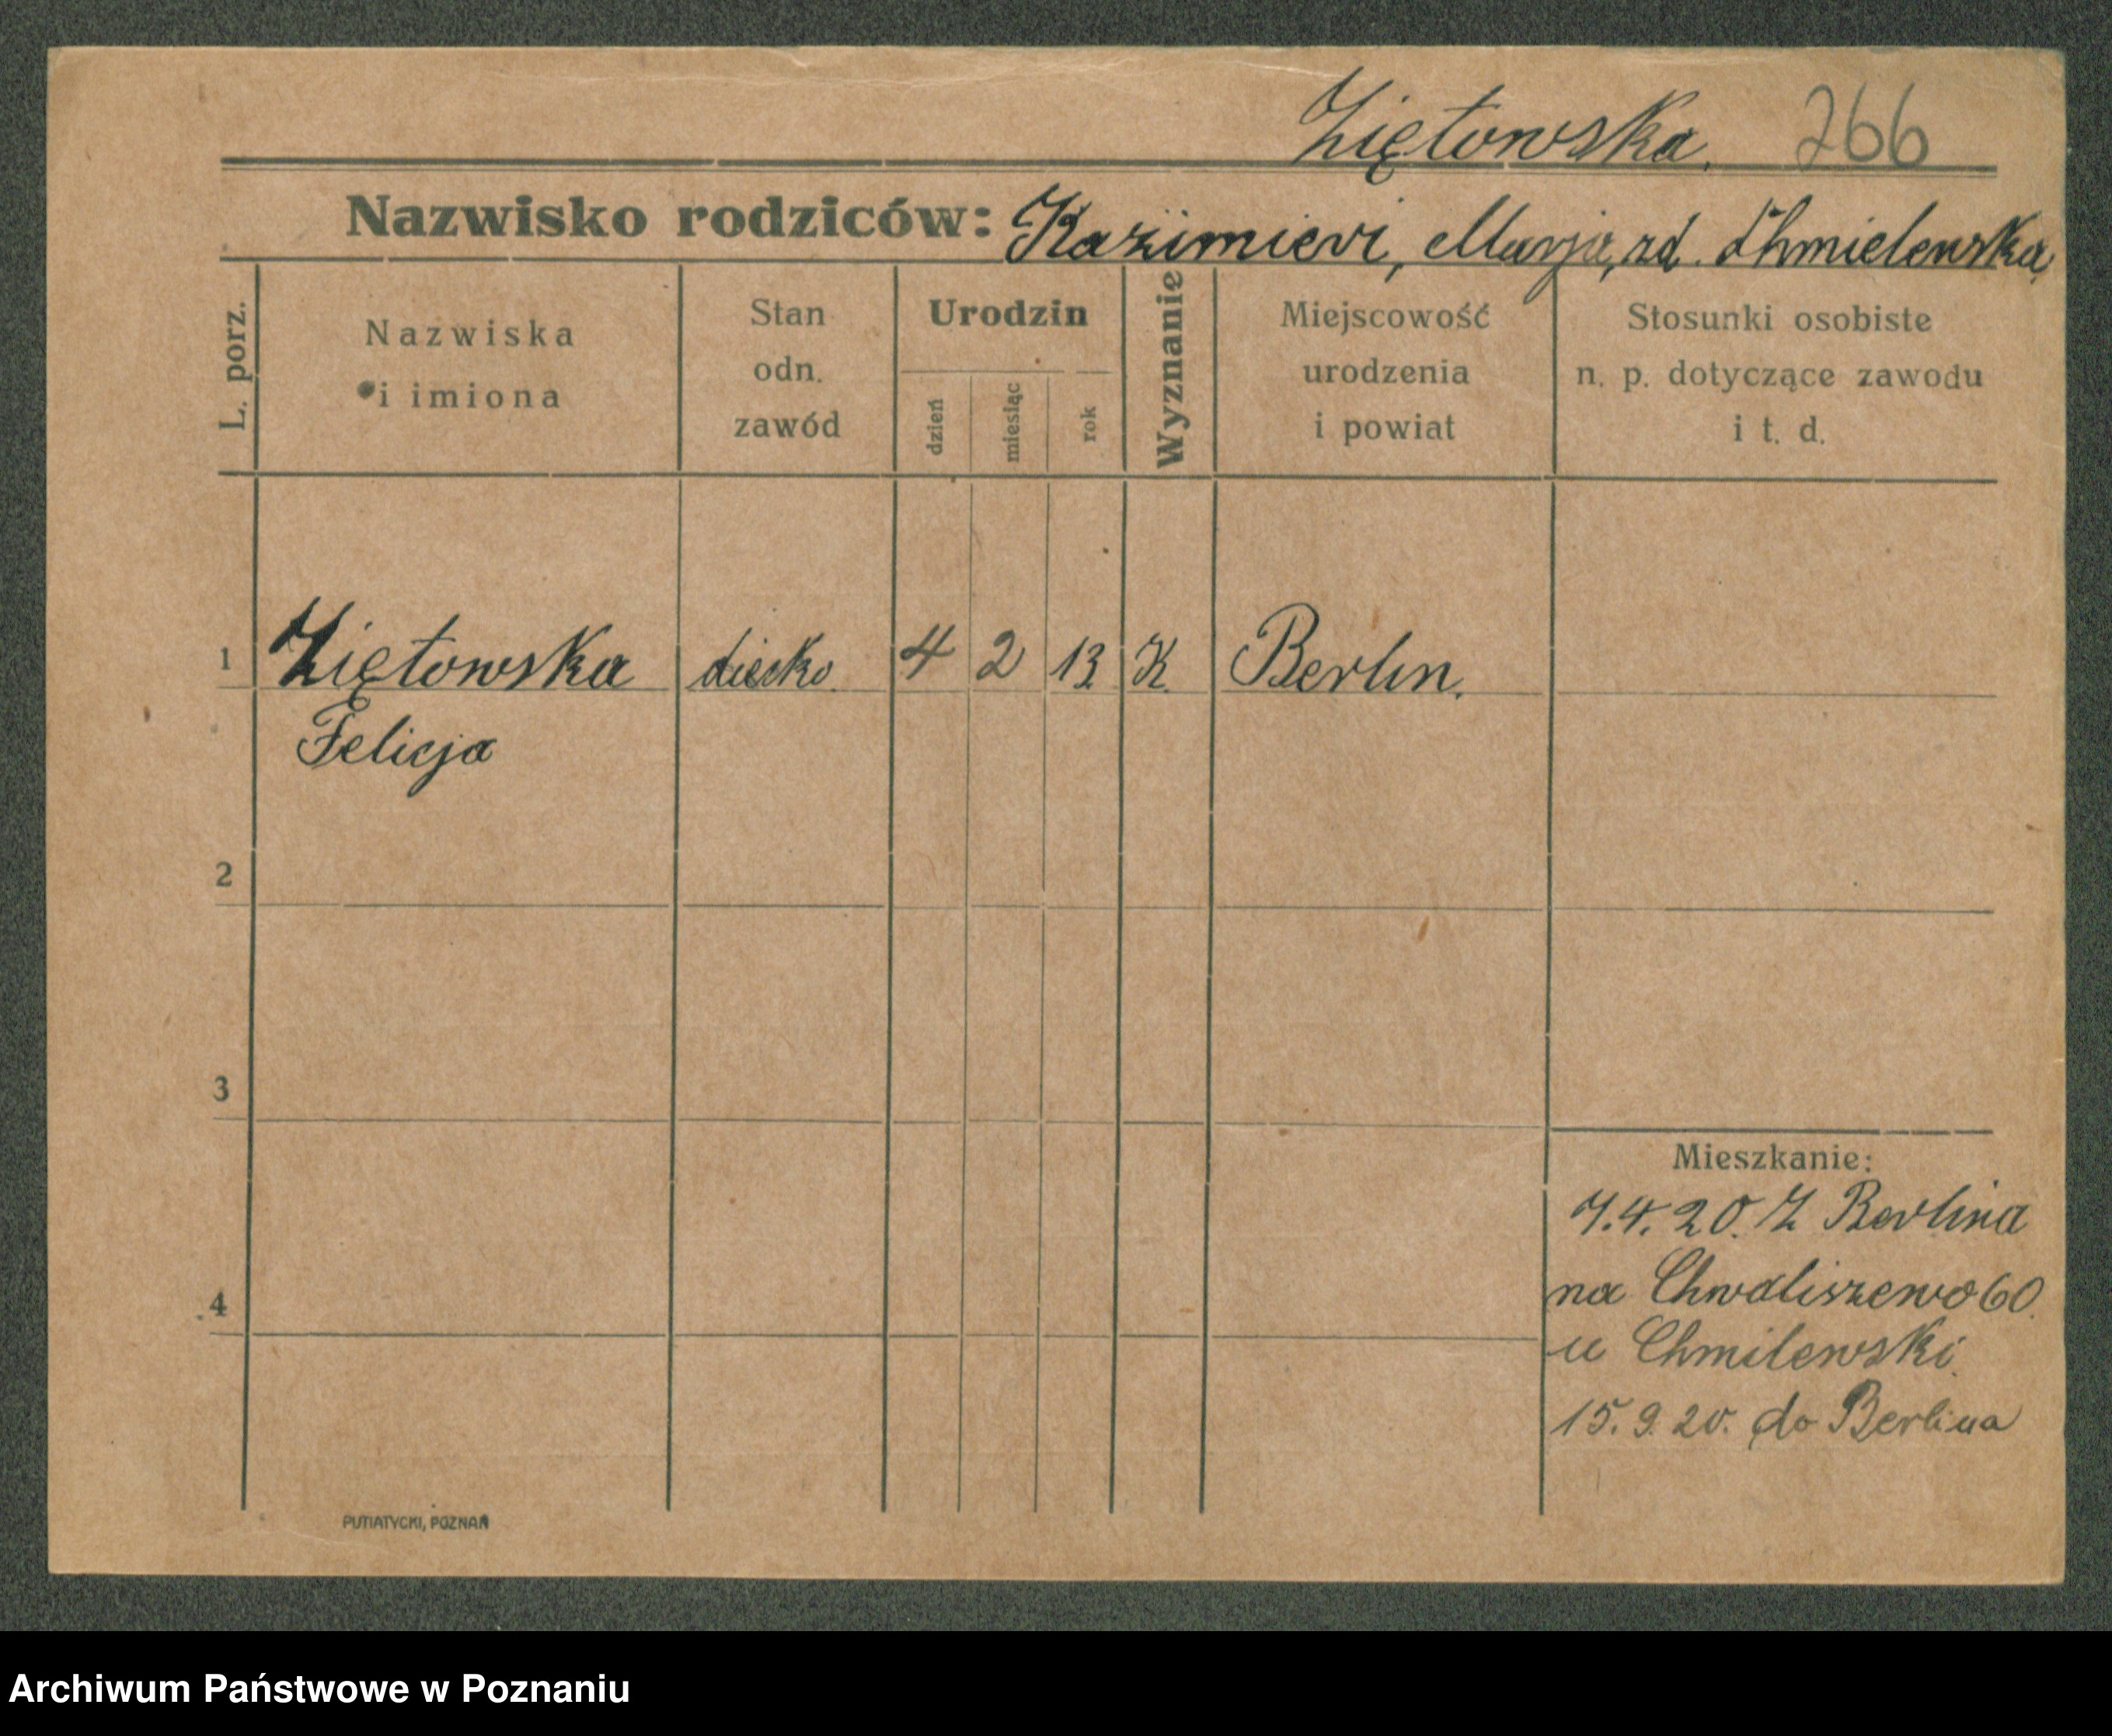 Ziętowska. 266
Nazwisko rodziców: Kazimierz, Marja, zd. Chmielewska
L. porz.
Nazwiska
i imiona
Stan
odn.
zawód
Urodzin
dzień
miesiąc
rok
Wyznanie
Miejscowość
urodzenia
i powiat
Stosunki osobiste
n. p. dotyczące zawodu
i t. d.
1 Ziętowska 4 2 13 K. Berlin.
Felicja
2
3
4
Mieszkanie:
7.4.20. Z Berlina
na Chwaliszewo 60.
u Chmilewski.
15.9.20. do Berlina
PUTIATYCKI, POZNAŃ
Archiwum Państwowe w Poznaniu